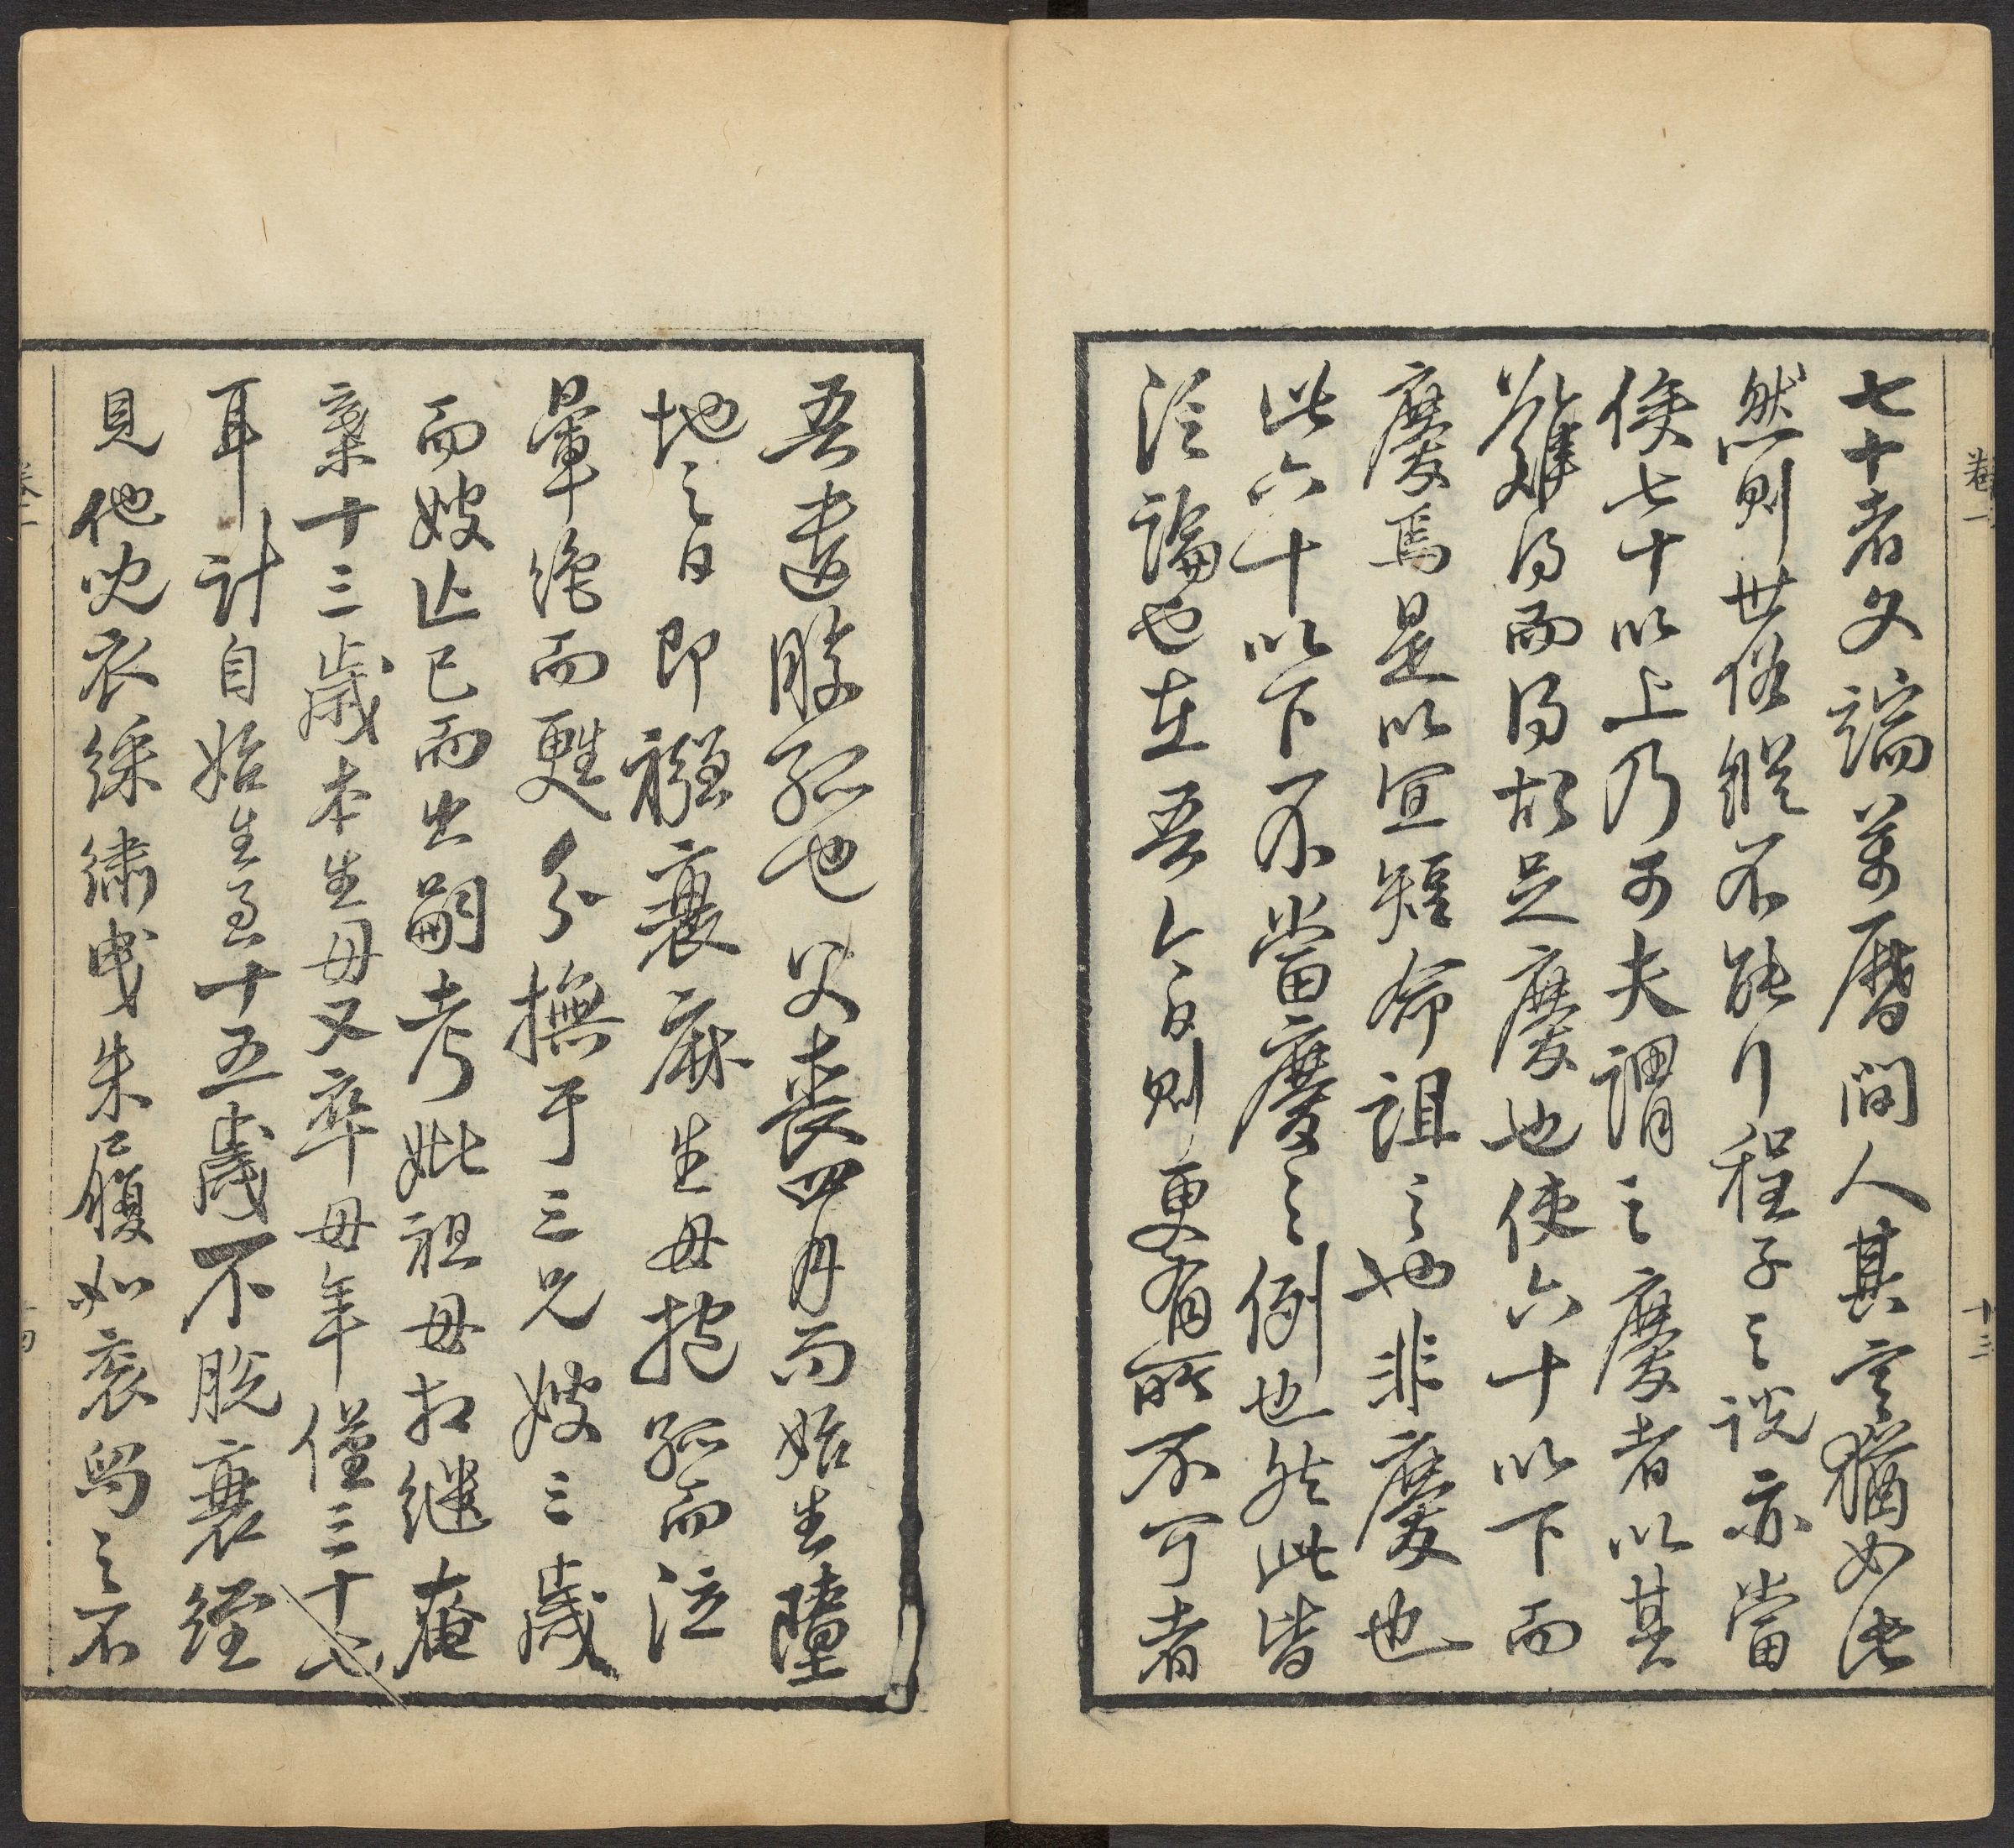 卷一
十三
七十者文端萬曆間人其言猶如此
然則世俗縱不能行程子之說亦當
俟七十以上乃可夫謂之慶者以其
難得而得故足慶也使六十以下而
慶焉是以宜短命詛之也非慶也
此六十以下不當慶之例也然此皆
泛論也在吾今日則更有所不可者
吾遺腹孤也父喪四月而始生墮
地之日即襁衰麻生母抱孤而泣
暈絕而甦分撫于三兄嫂三歲
而嫂亡已而出嗣考妣祖母相繼奄
棄十三歲本生母又卒母年僅三十七
耳計自始生至十五歲不脫衰絰
見他兒衣綵繡曳朱履如袞舄之不